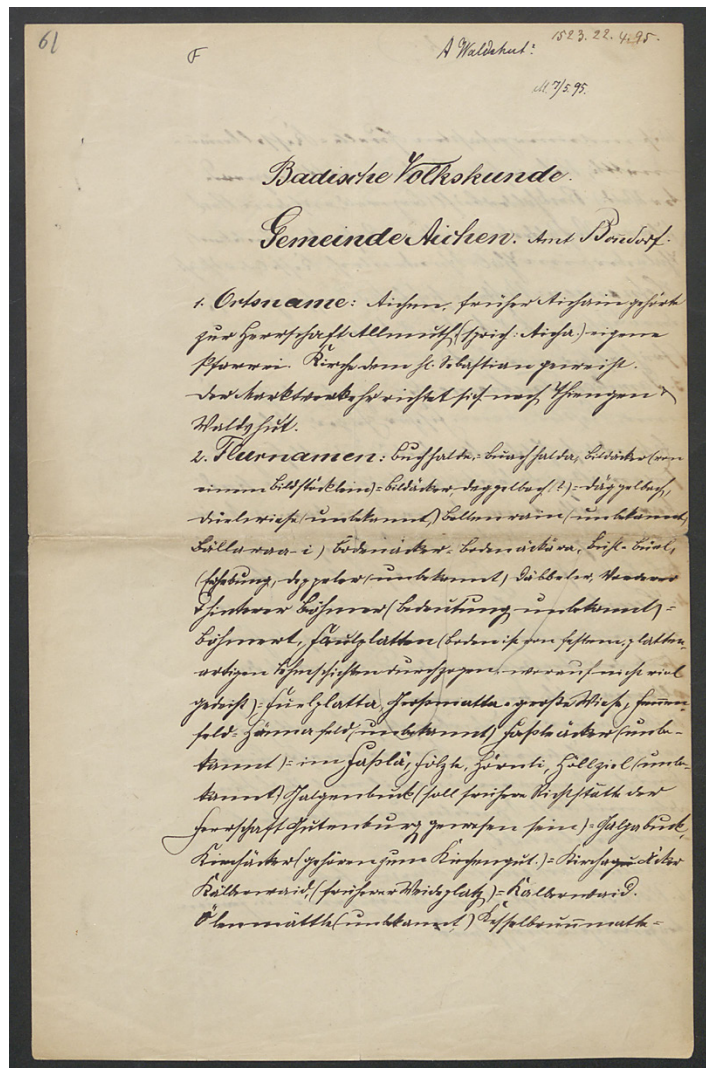 61
F
A Waldshut:
1523. 22.4.95.
M. 7/5.95.
Badische Volkskunde.
Gemeinde Aichen. Amt Bonndorf.
1. Ortsname: Aichen, früher Aichain gehörte
zur Herrschaft Allmuth (sprich: Aicha.) eigene
Pfarrei. Kirche dem hl. Sebastian geweiht.
Der Marktverkehr richtet sich nach Thiengen &
Waldshut.
2. Flurnamen: Buchhalde, = Buachhalda, Bildäcker (von
einem Bildstöcklein) = Bildäcker, Deggelbach (?) = Däggelbach,
(unbekannt) Bollenrain (unbekannt,
Bodenäcker = Bodenäckera, Bühl = Büel,
(Erhebung, Doppeler (unbekannt) Däbbeler, Vorderer
& hinterer Böhmer (Bedeutung unbekannt) =
Böhmert, Faulplatten (Boden ist von festem, platten-
artigen Lehmschichten durchzogen, worauf nicht viel
gedeiht) = Fuulplatta, Grossmatte = große Wiese,
feld = (unbekannt) Faßläcker (unbe-
kannt) = im Faßlä, Hölzle, Hörnli, Höllziel (unbe-
kannt) Galgenbuck (soll frühere Richtstätte der
Herrschaft Gutenburg gewesen sein) = Galgabuck,
Kirchäcker (gehören zum Kirchengut.) = Kirchaäcker
Kälberwaid, (früherer Weideplatz) = Kalberwaid.
(unbekannt) Kesselbrunnmatte =